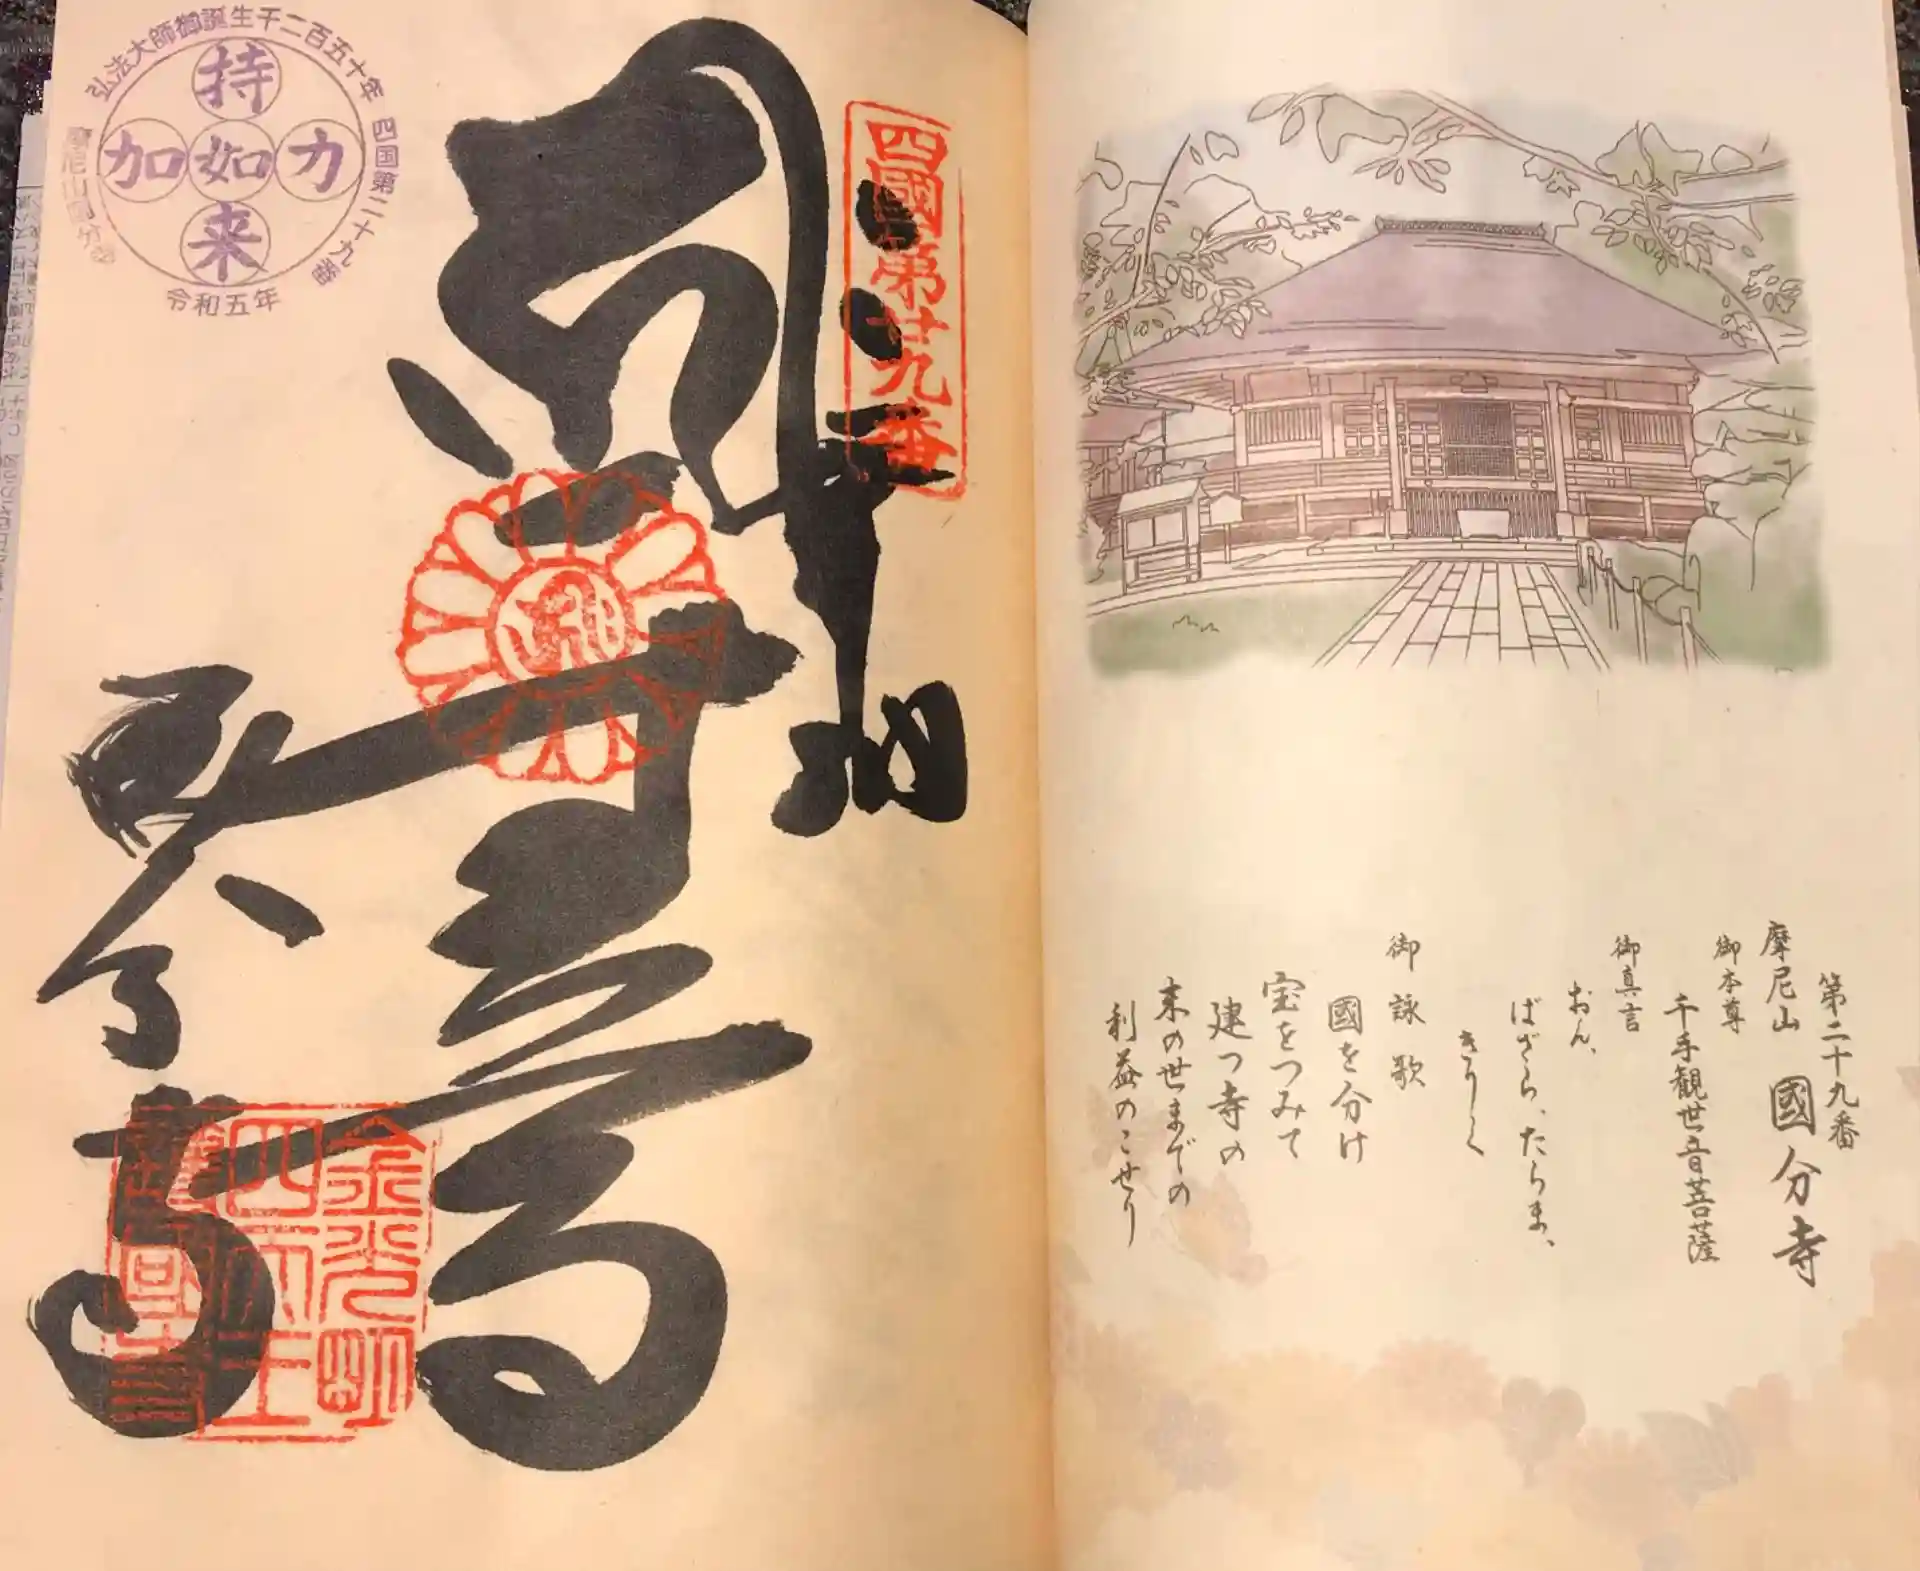 第二十九番
摩尼山 國分寺
御本尊
千手観世音菩薩
御真言
おん、
ばざら、たらま、
きりく
御詠歌
國を分け
宝をつみて
建つ寺の
末の世までの
利益のこせり
四國第廿九番
奉納
金光明
四天王
護国寺
弘法大師御誕生千二百五十年 四国第二十九番
持
加如力
来
摩尼山国分寺
令和五年